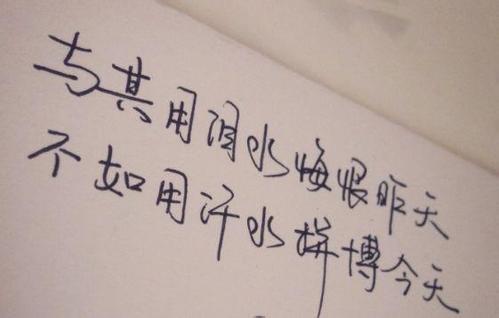 与其用泪水悔恨昨天
不如用汗水拼博今天